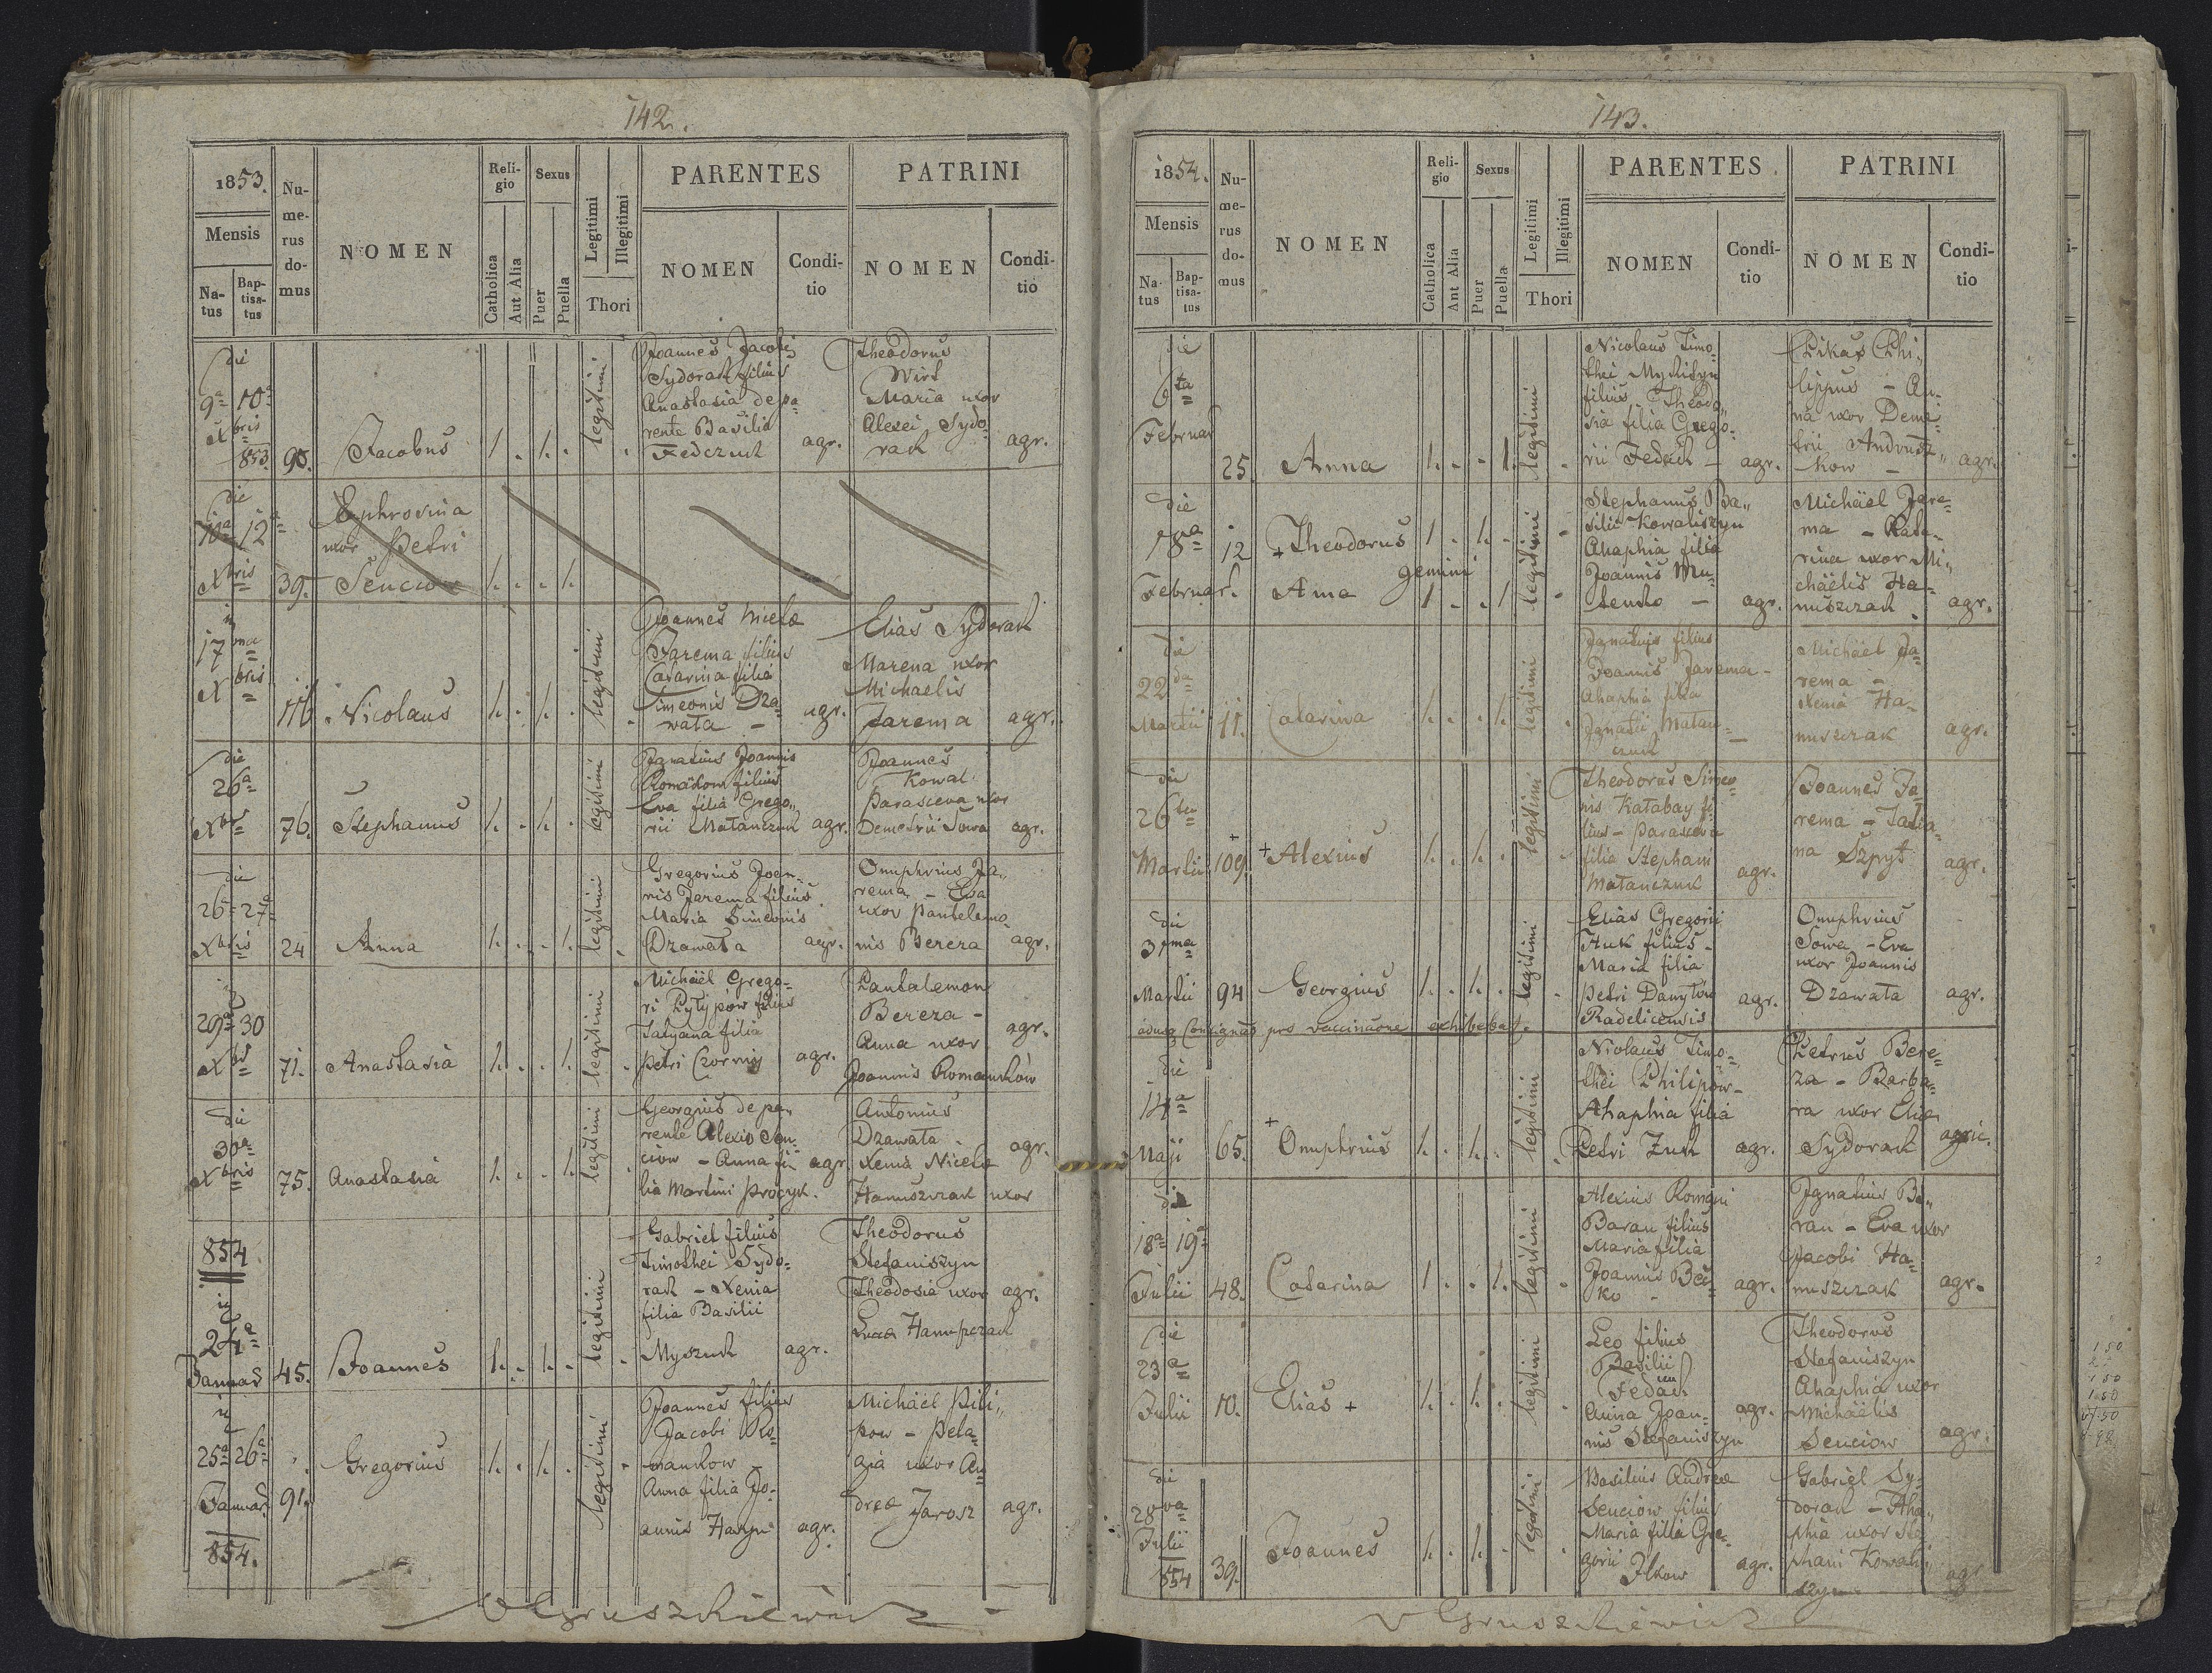 142.
1853.
Mensis
Na-
tus
Bap-
tisa-
tus
Nu-
me-
rus
do-
mus
NOMEN
Reli-
gio
Catholica
Aut Alia
Sexus
Puer
Puella
Legitimi
Illegitimi
Thori
PARENTES
NOMEN
Condi-
tio
PATRINI
NOMEN
Condi-
tio
die
9a 10a
Xbris
853.
90.
Jacobus
1 . 1. .
legitimi
Joannes Jacobi
Sydorak filius
Anastasia de pa-
rente Basilio
Fedczuk
agr.
Theodorus
Wirt
Maria uxor
Alexei Sydo-
rak
agr.
die
12a
Xbris
39.
Ephrosina
uxor Petri
Senciow
1. . . 1.
17ma
Xbris
116
Nicolaus
1. . 1. .
legitimi
Joannes
Jarema filius
Catarina filia
Simeonis Dza-
wala -
agr.
Elias Sydorak
Marena uxor
Michaelis
Jarema
agr.
die
26a
Xbr
76.
Stephanus
1. . 1. .
legitimi
Ignatius Joannis
filius
Eva filia Grego-
rii Matanczuk
agr.
Joannes
Kowal
Parasceva uxor
Demetrii Sowa
agr.
die
26 27a
Xbris
24
Anna
1. . . 1.
legitimi
Gregorius Joan-
nis Jarema filius
Maria Simeonis
Dzawala
agr.
Onuphrius Ja-
rema - Eva
uxor Pantelemo-
nis Bereza
agr.
29a 30
Xbr
71.
Anastasia
1. . . 1.
legitimi
Michaël Grego-
ri Pylypów filius
Tatyana filia
Petri Czornij
agr.
Pantalemon
Bereza -
Anna uxor
Joannis Romanków
agr.
die
30a
Xbris
75.
Anastasia
1. . . 1.
legitimi
Georgius de pa-
rente Alexio Sen-
ciow - Anna fi-
lia Martini Procyk.
agr.
Antonius
Dzawala
Xenia
Hanuszczak uxor
agr.
854
24a
Januar
45.
Joannes
1. . 1. .
legitimi
Gabriel filius
Timothei Sydo-
rak - Xenia
filia Basilii
Myszuk
agr.
Theodorus
Stefaniszyn
Theodosia uxor
Lucae Hanuszczak
agr.
25a 26a
Januar.
854.
91.
Gregorius
1. . 1. .
legitimi
Joannes filius
Jacobi Ro-
mankow
Anna filia Jo-
annis
agr.
Michaël Pili-
pow - Pela-
gia uxor An-
dreae Jarosz
agr.
V Gruszkiewicz
143.
1854.
Mensis
Na-
tus
Bap-
tisa-
tus
Nu-
me-
rus
do-
mus
NOMEN
Reli-
gio
Catholica
Aut Alia
Sexus
Puer
Puella
Legitimi
Illegitimi
Thori
PARENTES
NOMEN
Condi-
tio
PATRINI
NOMEN
Condi-
tio
die
6ta
Februar
25.
Anna
1. . . 1.
legitimi
Nicolaus Timo-
thei
filius Theodo-
sia filia Grego-
rii Fedak -
agr.
Phi-
lippus - An-
na uxor Deme-
trii
agr.
die
18va
Februar.
12
+ Theodorus
gemini
Anna
1 . 1. .
1 . . 1
legitimi
Stephanus Ba-
silii Kowaliszyn
Ahaphia filia
Joannis
agr.
Michäel Jare-
ma - Kata-
rina uxor Mi-
chäelis Ha-
nuszczak.
agr.
die
22da
Martii
11.
Catarina
1. . . 1.
legitimi
Ignatius filius
Joannis Jarema -
Ahaphia filia
Ignatii Matan-
czuk
Michäel Ja-
rema -
Xenia Ha-
nuszczak
agr.
die
26ta
Martii
109.
+ Alexius
1. . 1. .
legitimi
Theodorus Simeo-
nis Katabay fi-
lius - Parasceva
filia Stephani
Matanczuk
agr.
Joannes Ja-
rema - Tatia-
na Szpyt
agr.
die
31ma
Martii
94
Georgius
1. . 1. .
legitimi
Elias Gregorii
Huk filius -
Maria filia
Petri Danylów
Radelicensis
agr.
Onuphrius
Sowa - Eva
uxor Joannis
Dzawala
agr.
pro vaccinatione exhibebat.
die
14a
Maji
65.
+ Onuphrius
1. . 1. .
legitimi
Nicolaus Timo-
thei Philipów -
Ahaphia filia
Petri Zuk
agr.
Petrus Bere-
za - Barba-
ra uxor Eliae
Sydorak
agric.
18a 19a
Julii
48.
Catarina
1 . . 1.
legitimi
Alexius Romani
Baran filius
Maria filia
Joannis
agr.
Ignatius Ba-
ran - Eva uxor
Jacobi Ha-
nuszczak
agr.
die
23a
Julii
10.
Elias +
1. . 1. .
legitimi
Leo filius
Basilii
Fedak
Anna Joan-
nis Stefaniszyn
agr.
Theodorus
Stefaniszyn
Ahaphia uxor
Michäelis
Senciow
agr.
die
28va
Julii
854
39.
Joannes
1. . 1. .
legitimi
Basilius Andreae
Senciow filius
Maria filia Gre-
gorii Ilkow
agr.
Gabriel Sy-
dorak - Aha-
phia uxor Ste-
phani Kowali-
szyn
agr
V Gruszkiewicz